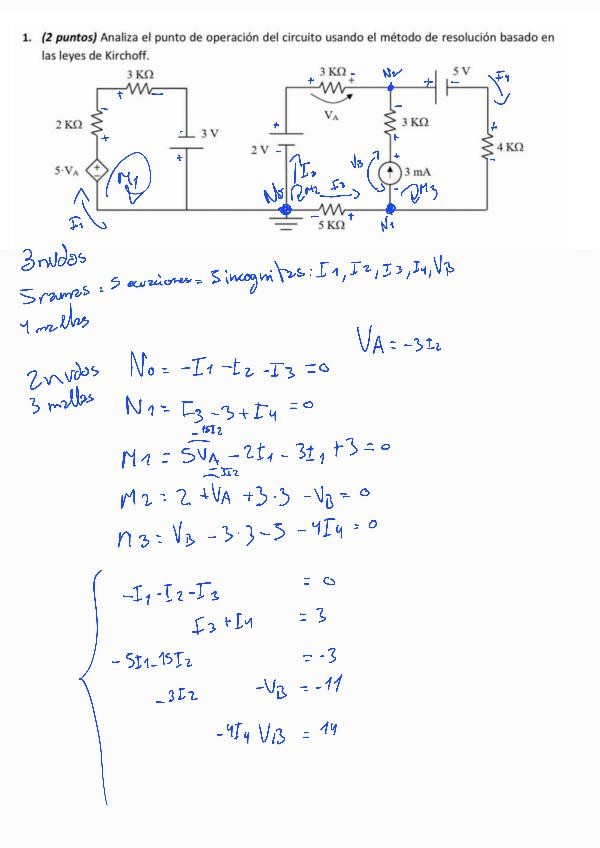 1. (2 puntos) Analiza el punto de operación del circuito usando el método de resolución basado en
las leyes de Kirchoff.
3 KΩ
3 KΩ
N2
5 V
I4
2 KΩ
3 V
VA
3 KΩ
4 KΩ
2 V
5·VA
M1
I2
VB
3 mA
I1
No
M2
I3
M3
5 KΩ
N1
3 nudos
5 ramas : 5 ecuaciones = 5 incognitas: I1, I2, I3, I4, VB
4 mallas
VA = -3I2
2 nudos
3 mallas
No = -I1 - I2 - I3 = 0
N1 = I3 - 3 + I4 = 0
-15I2
M1 = 5VA - 2I1 - 3I1 + 3 = 0
-3I2
M2 = 2 + VA + 3·3 - VB = 0
M3 = VB - 3·3 - 5 - 4I4 = 0
-I1 - I2 - I3 = 0
I3 + I4 = 3
-5I1 - 15I2 = -3
-3I2 -VB = -11
-4I4 VB = 14